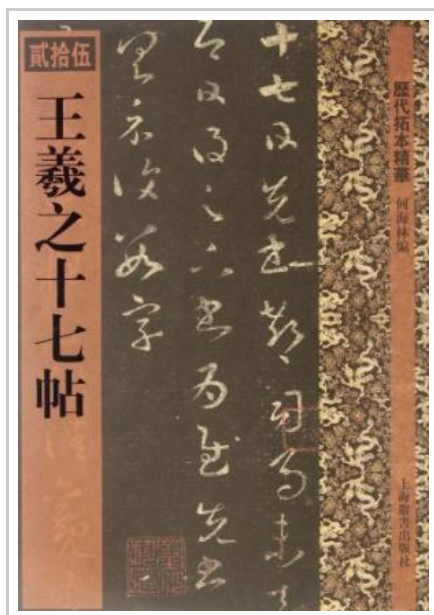 歷代拓本精華
何海林編
上海辭書出版社
十七日先書郗司馬未去
即日得足下書為慰先書
以具示復數字
貳拾伍
王羲之十七帖